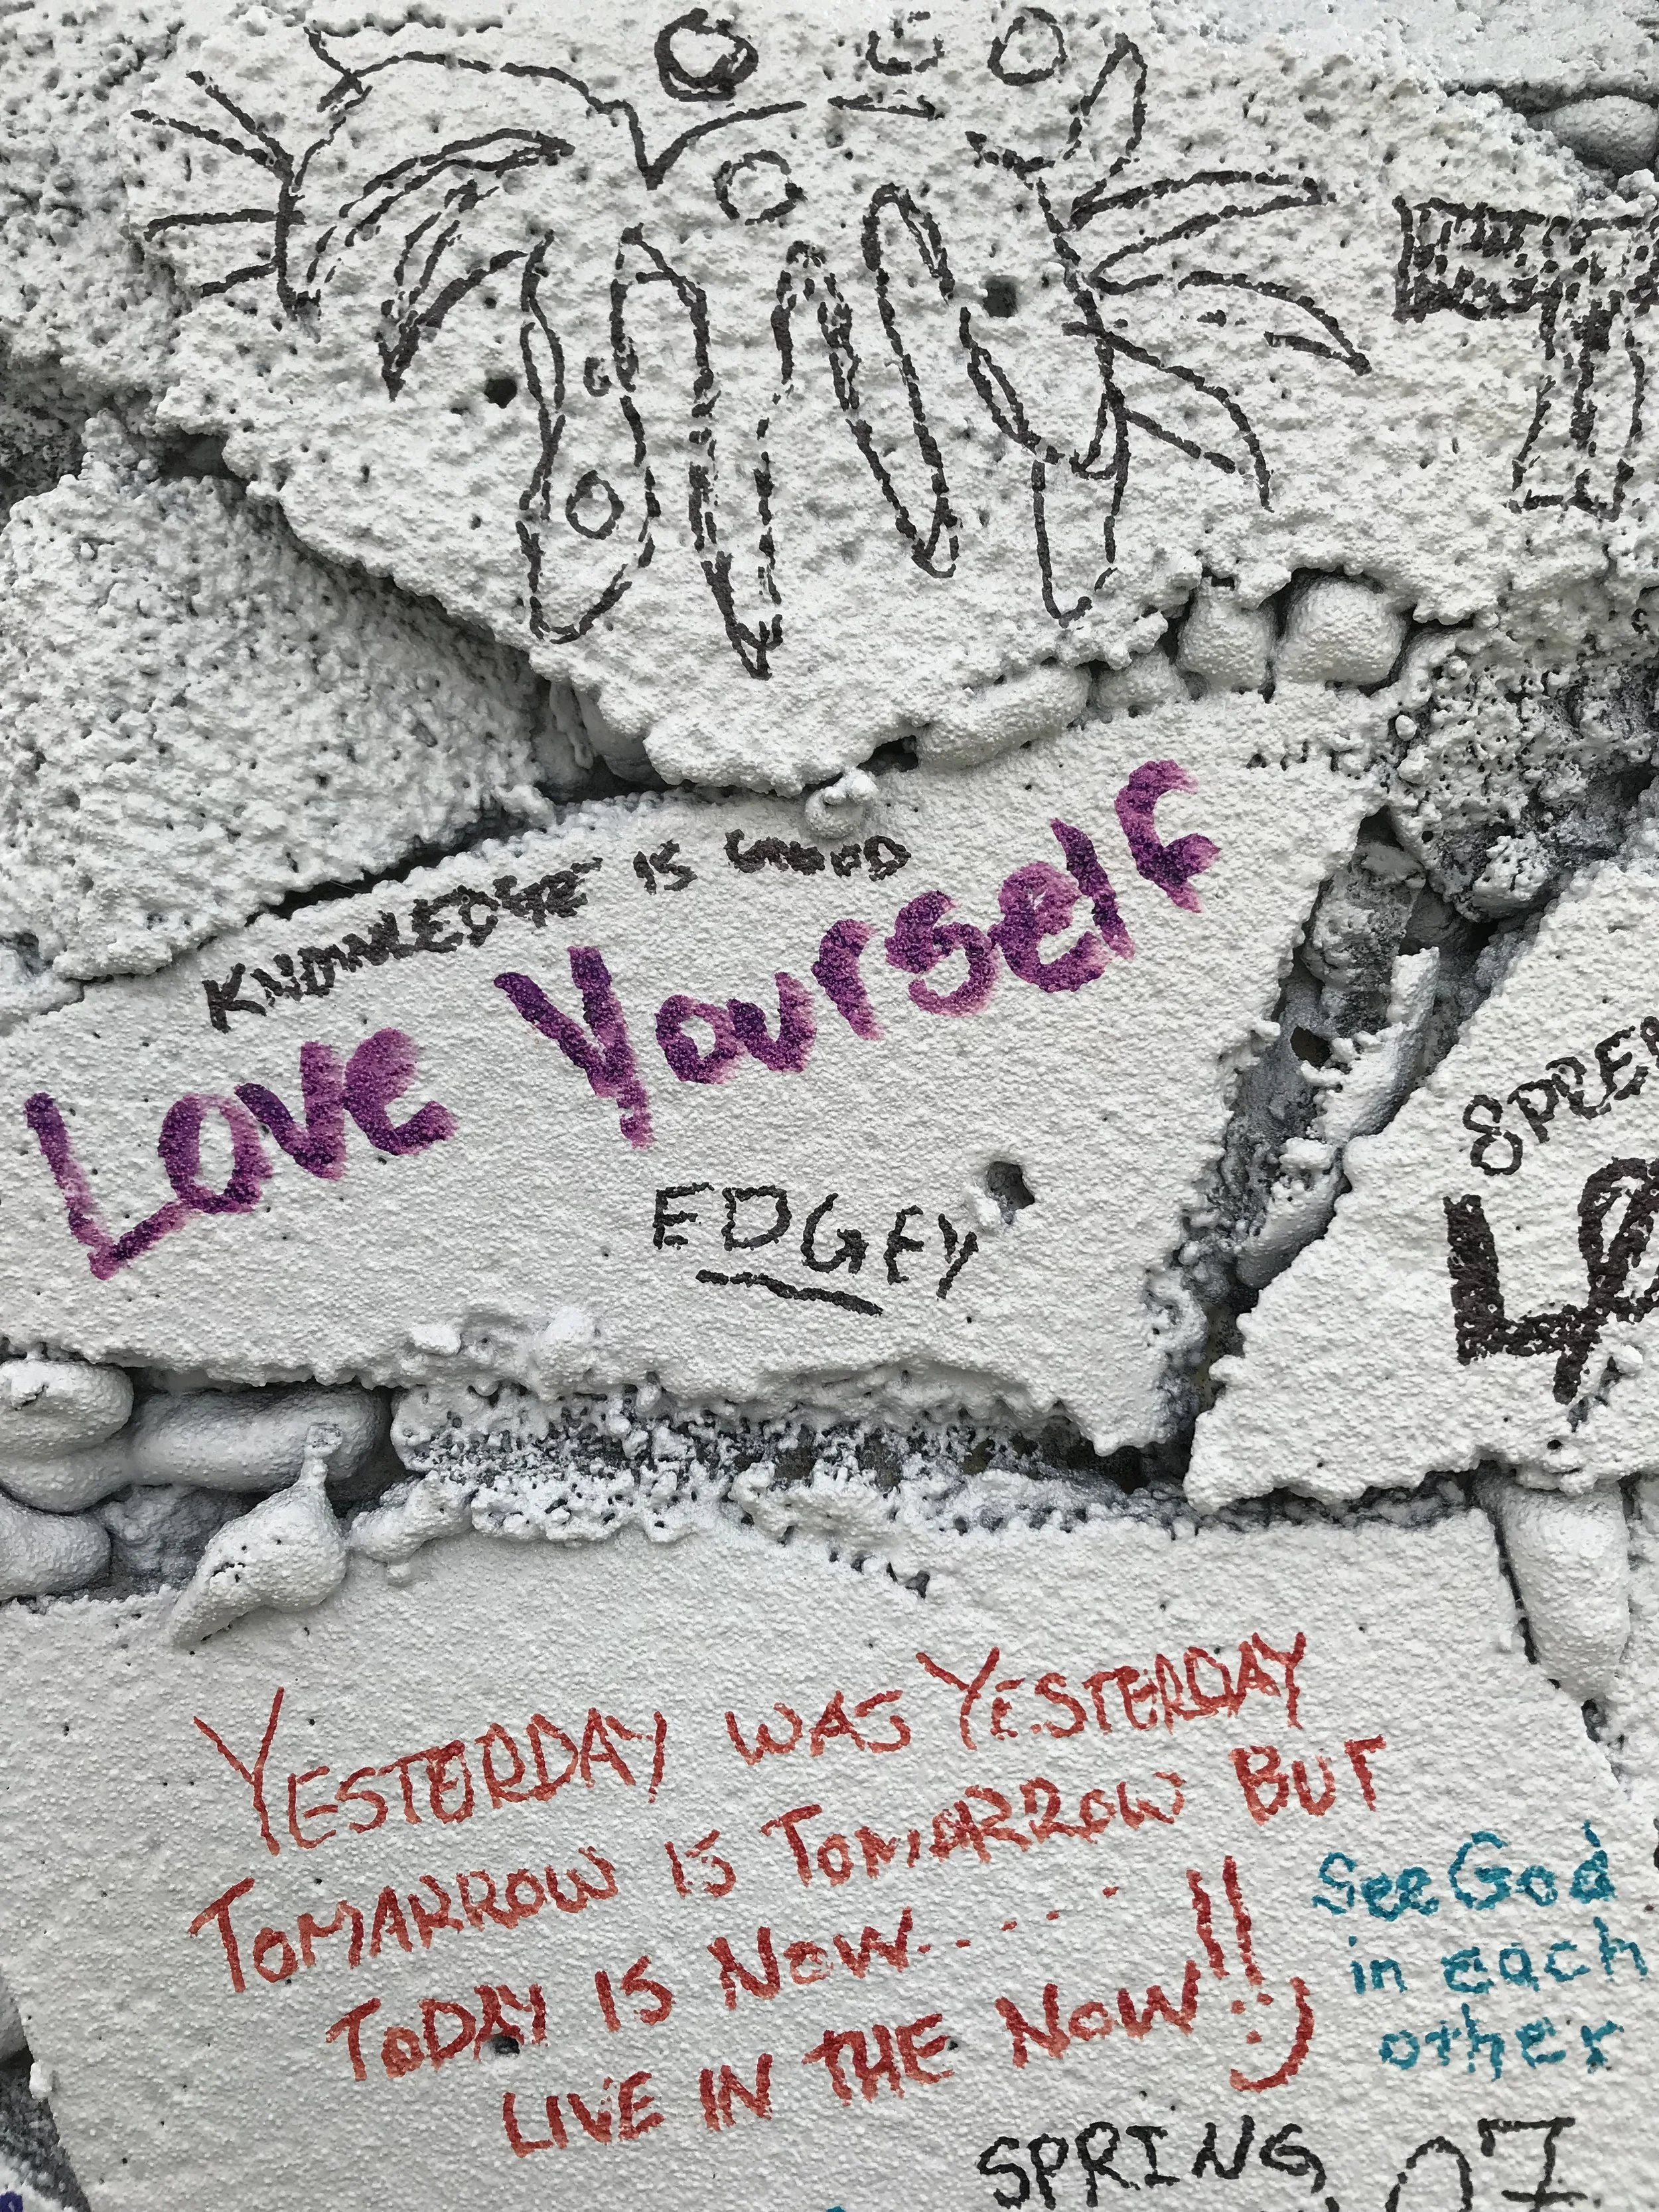 KNOWLEDGE IS GOOD
Love Yourself
EDGEY
YESTERDAY WAS YESTERDAY
TOMARROW IS TOMARROW BUT
TODAY IS NOW.......
LIVE IN THE NOW!! :)
See God
in each
other
SPRING